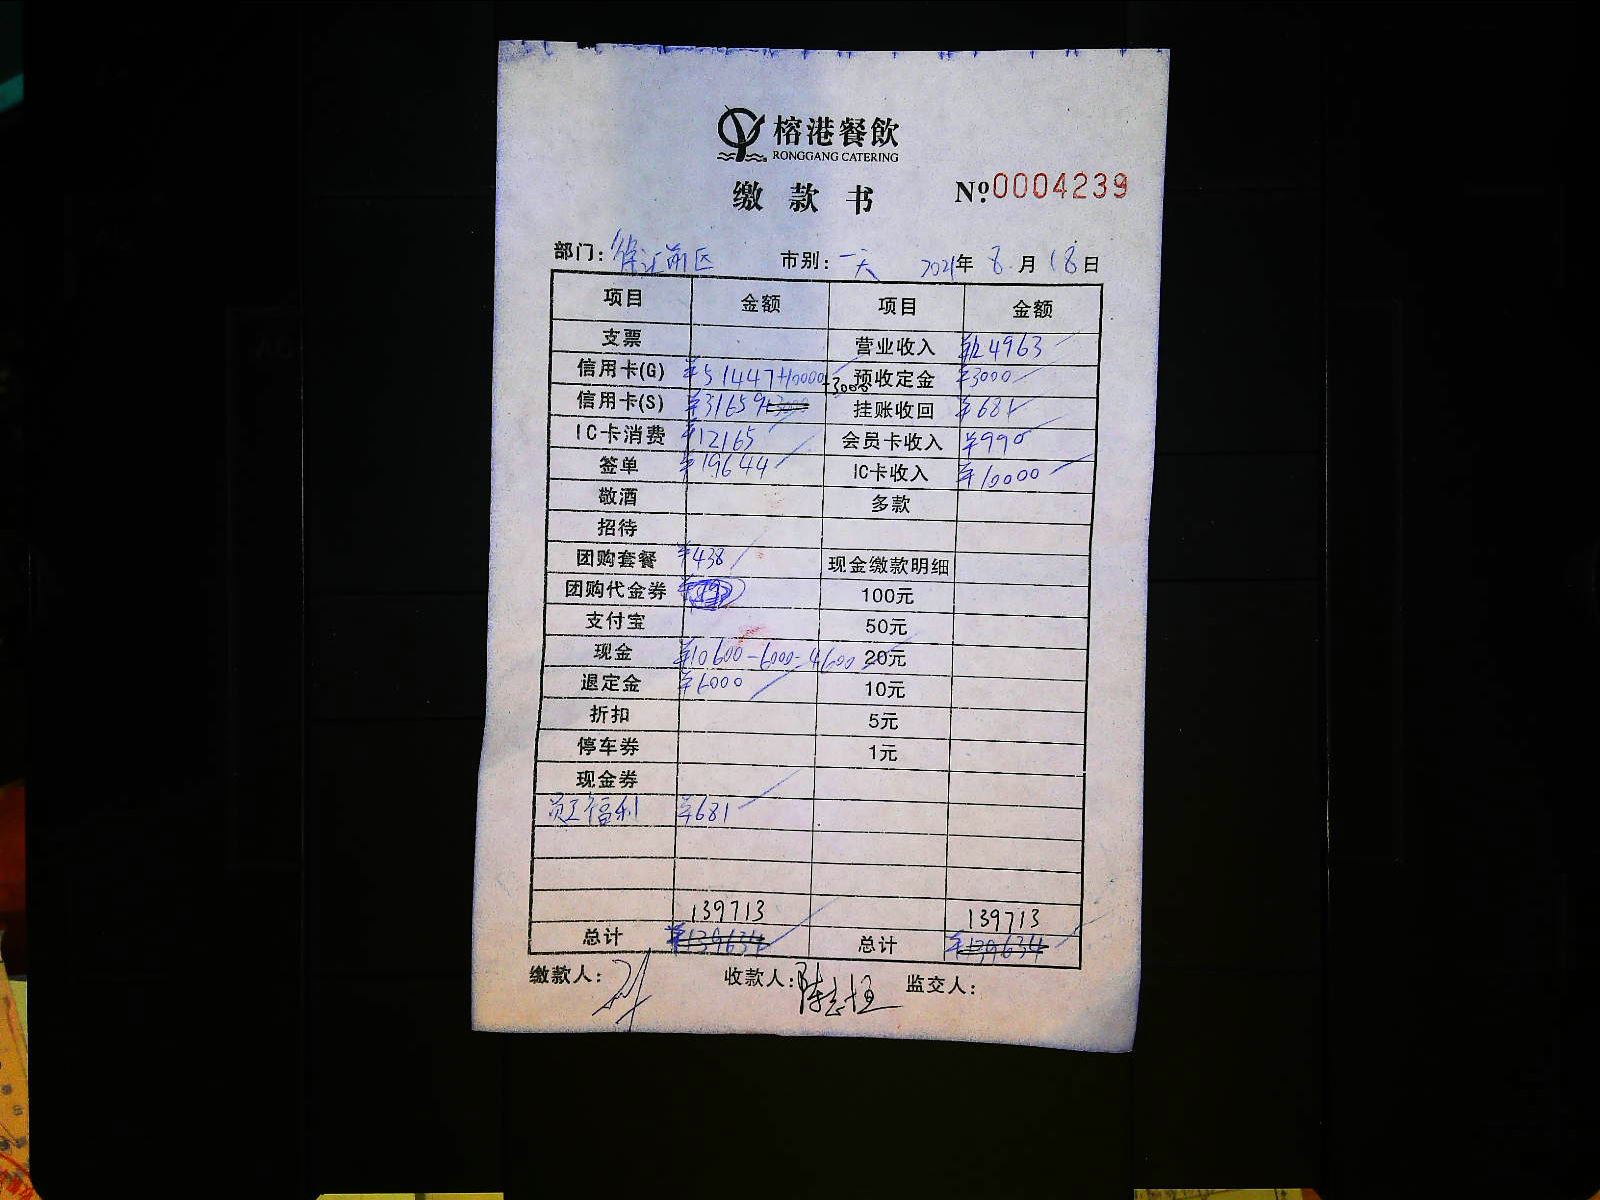 榕港餐飲
RONGGANG CATERING
缴款书 №0004239
部门: 徐汇前区 市别: 一天 2021年 8月 18日
项目 金额 项目 金额
支票 营业收入 ¥124963
信用卡(G) ¥51447+10000+3000 预收定金 ¥3000
信用卡(S) ¥31659+3000 挂账收回 ¥681
IC卡消费 ¥12165 会员卡收入 ¥990
签单 ¥19644 IC卡收入 ¥10000
敬酒 多款
招待
团购套餐 ¥438 现金缴款明细
团购代金券 100元
支付宝 50元
现金 ¥10600-6000=4600 20元
退定金 ¥6000 10元
折扣 5元
停车券 1元
现金券
员工福利 ¥681
139713 139713
总计 ¥139634 总计 ¥139634
缴款人: 收款人: 陈志恒 监交人: